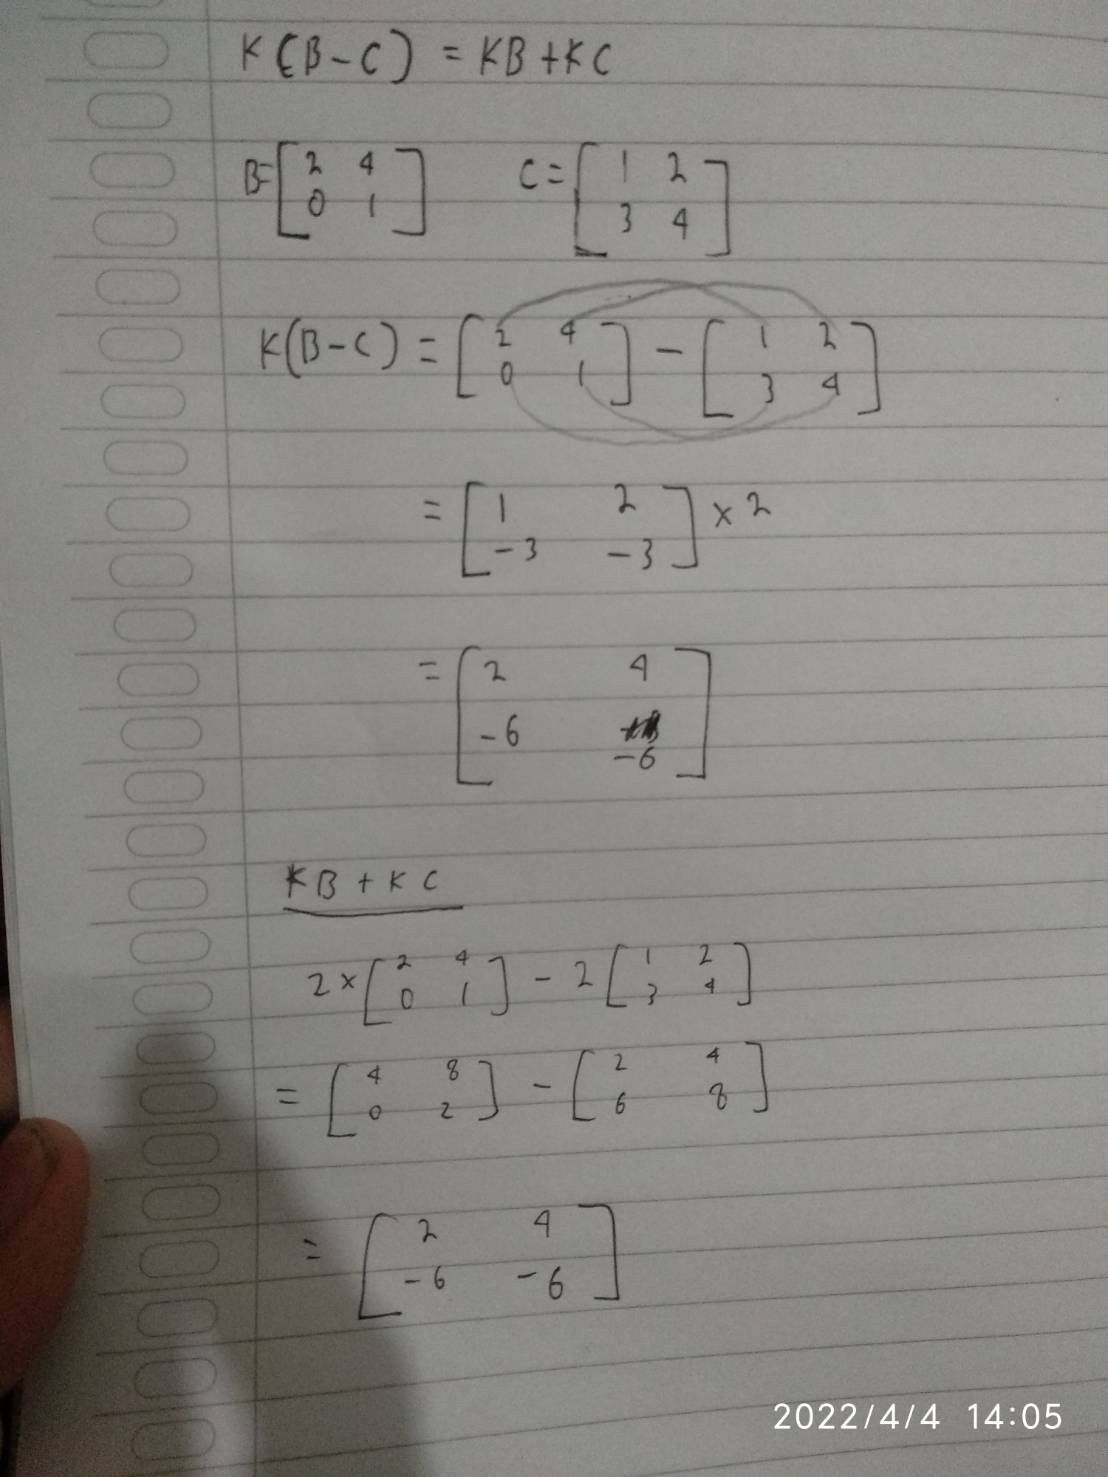 K(B-C) = KB+KC
B=[2 4
0 1] C=[1 2
3 4]
K(B-C) = [2 4
0 1] - [1 2
3 4]
= [1 2
-3 -3] × 2
= [2 4
-6
-6]
KB + KC
2×[2 4
0 1] - 2[1 2
3 4]
= [4 8
0 2] - [2 4
6 8]
= [2 4
-6 -6]
2022/4/4 14:05